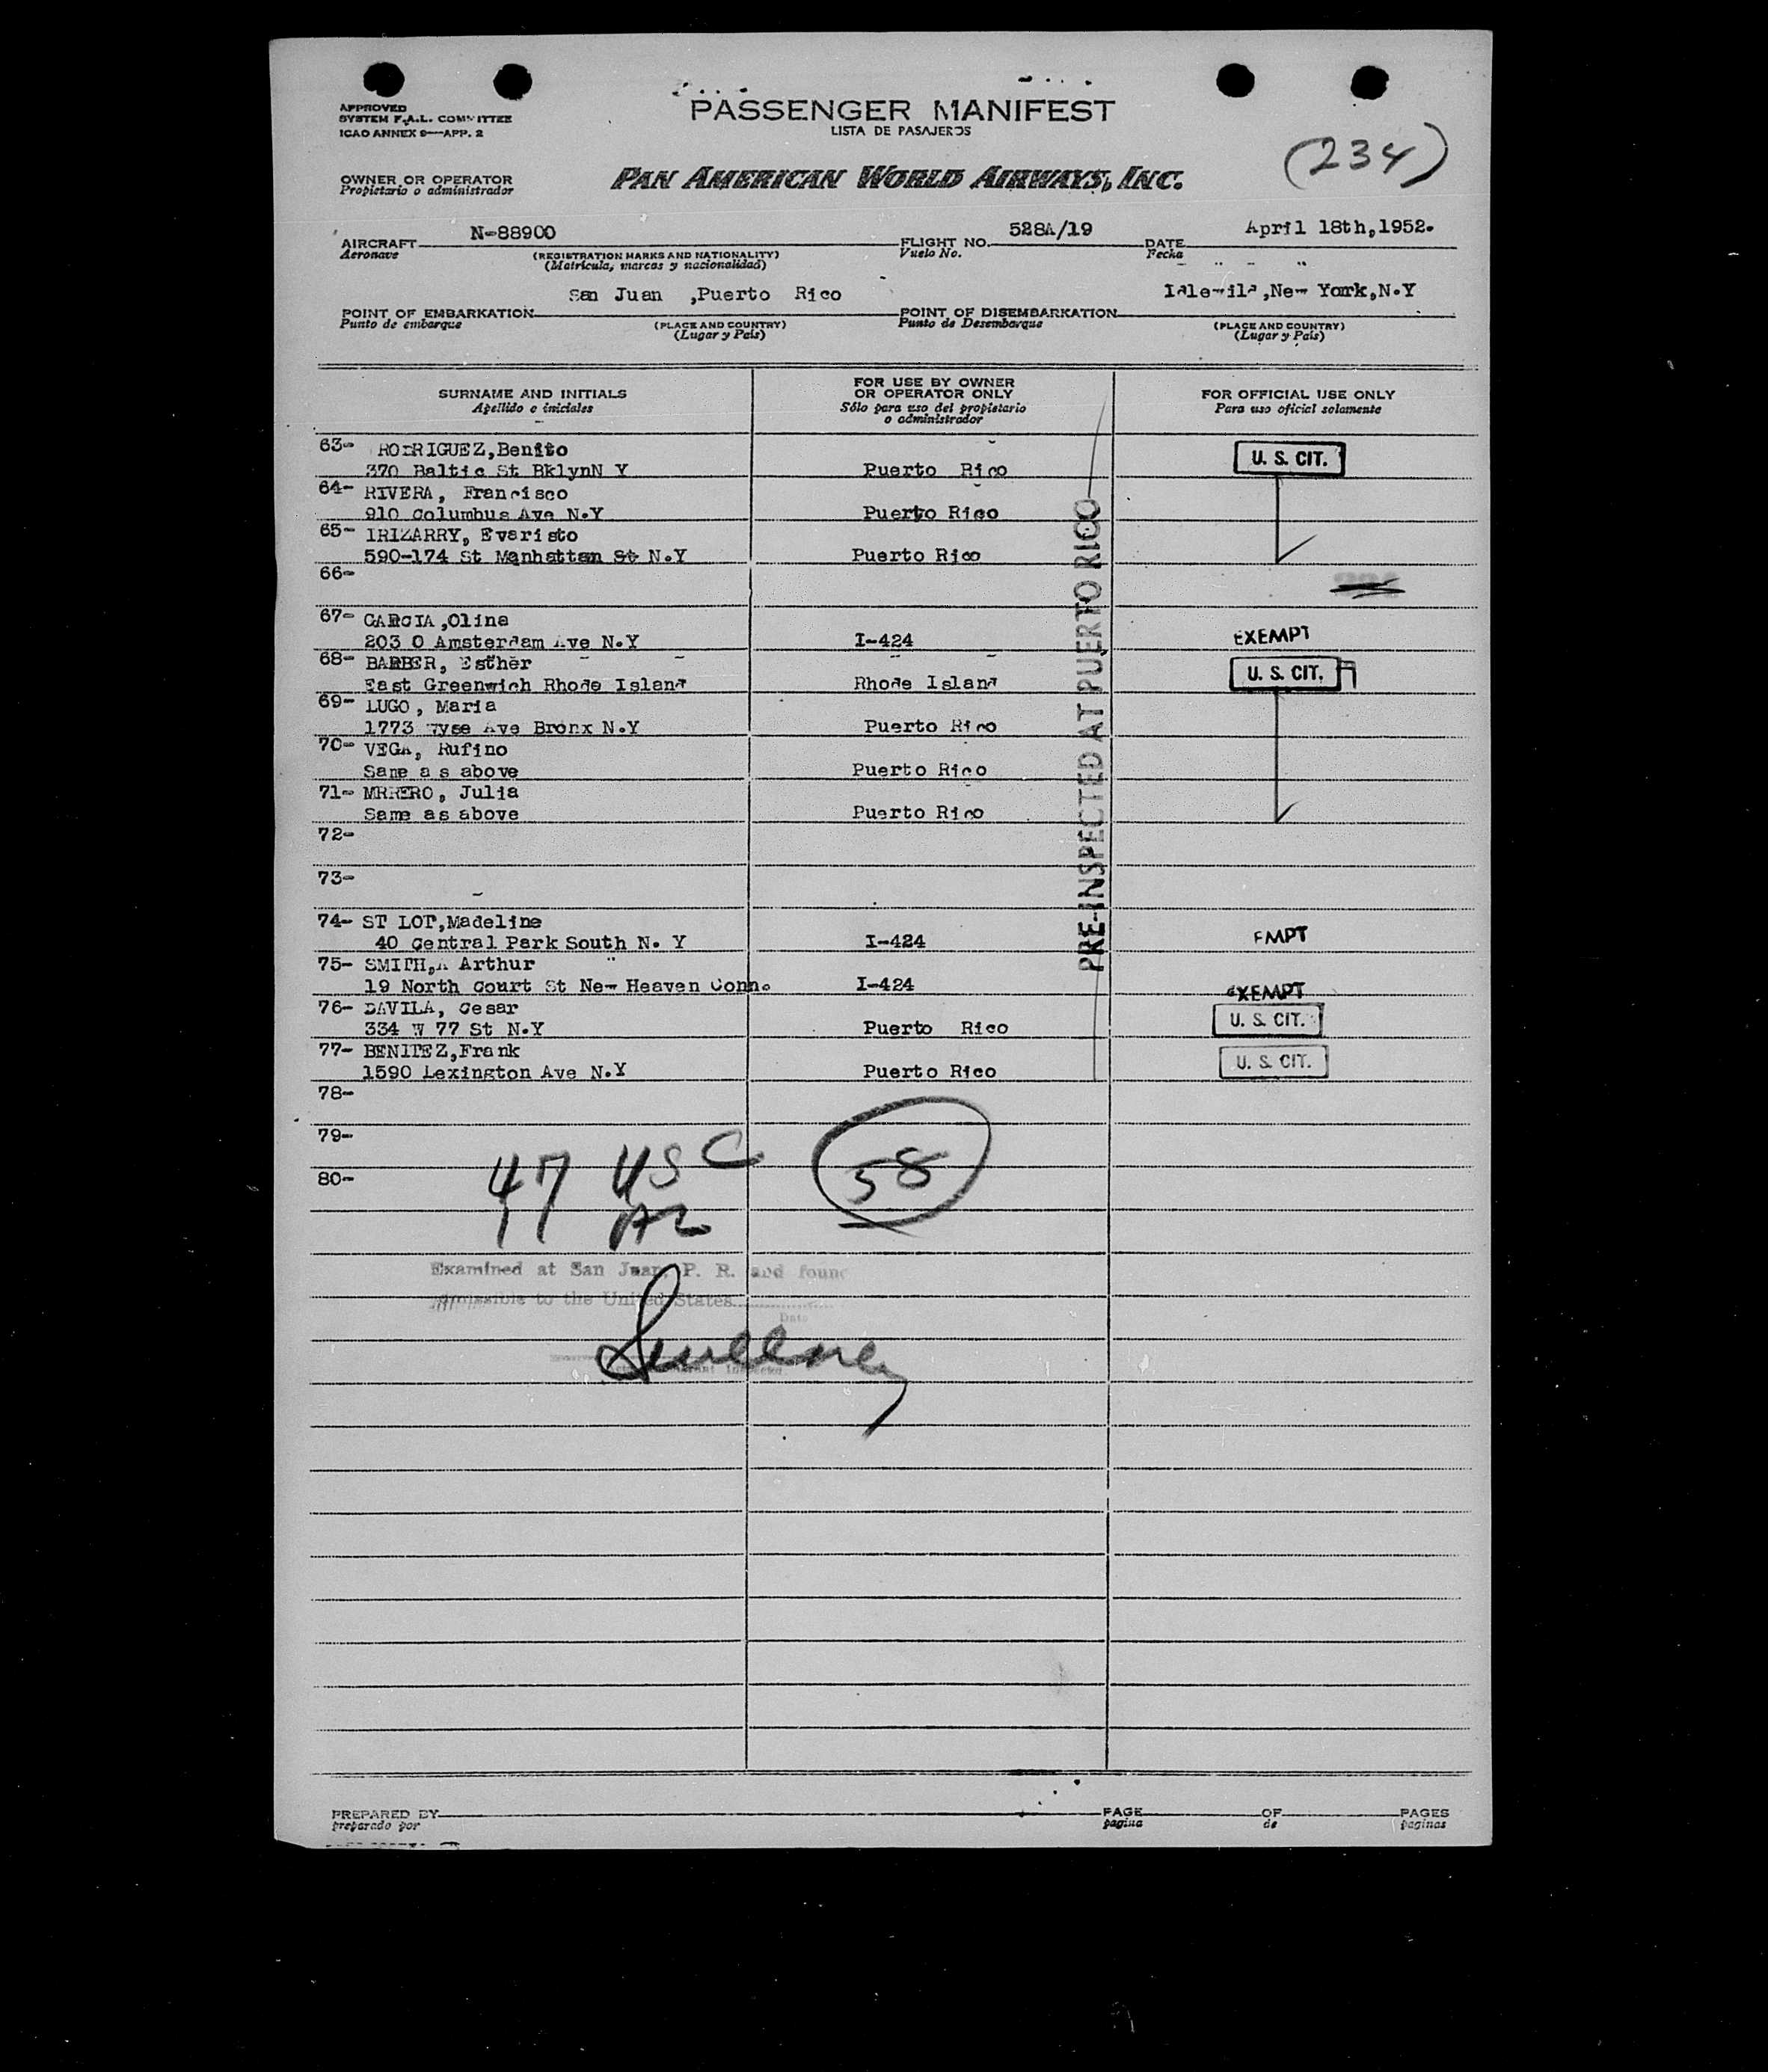 APPROVED
SYSTEM F.A.L. COMMITTEE
ICAO ANNEX 9—APP. 2
PASSENGER MANIFEST
LISTA DE PASAJEROS
(234)
OWNER OR OPERATOR
Propietario o administrador
PAN AMERICAN WORLD AIRWAYS, INC.
AIRCRAFT N-88900 FLIGHT NO. 528A/19 DATE April 18th,1952.
Aeronave (REGISTRATION MARKS AND NATIONALITY) Vuelo No. Fecha
(Matrícula, marcas y nacionalidad)
POINT OF EMBARKATION San Juan ,Puerto Rico POINT OF DISEMBARKATION Idlewild,New York,N.Y
Punto de embarque (PLACE AND COUNTRY) Punto de Desembarque (PLACE AND COUNTRY)
(Lugar y País) (Lugar y País)
SURNAME AND INITIALS FOR USE BY OWNER OR OPERATOR ONLY FOR OFFICIAL USE ONLY
Apellido e iniciales Sólo para uso del propietario o administrador Para uso oficial solamente
63- RODRIGUEZ,Benito
370 Baltic St BklynN Y Puerto Rico U. S. CIT.
64- RIVERA, Francisco
910 Columbus Ave N.Y Puerto Rico
65- IRIZARRY, Evaristo
590-174 St Manhattan St N.Y Puerto Rico
66-
67- GARCIA ,Olina
203 0 Amsterdam Ave N.Y I-424 EXEMPT
68- BARBER, Esther
East Greenwich Rhode Island Rhode Island U. S. CIT.
69- LUGO, Maria
1773 Vyse Ave Bronx N.Y Puerto Rico
70- VEGA, Rufino
Same a s above Puerto Rico
71- MRRERO, Julia
Same as above Puerto Rico
72-
73-
74- ST LOT,Madeline
40 Central Park South N. Y I-424 EMPT
75- SMITH,A Arthur
19 North Court St New Heaven Conn. I-424 EXEMPT
76- DAVILA, Cesar
334 W 77 St N.Y Puerto Rico U. S. CIT.
77- BENITEZ,Frank
1590 Lexington Ave N.Y Puerto Rico U. S. CIT.
78-
79-
80-
PRE-INSPECTED AT PUERTO RICO
47 USC 58
Examined at San Juan, P. R. and found
admissible to the United States
Date
Sweeney
PREPARED BY PAGE OF PAGES
preparado por pagina de paginas